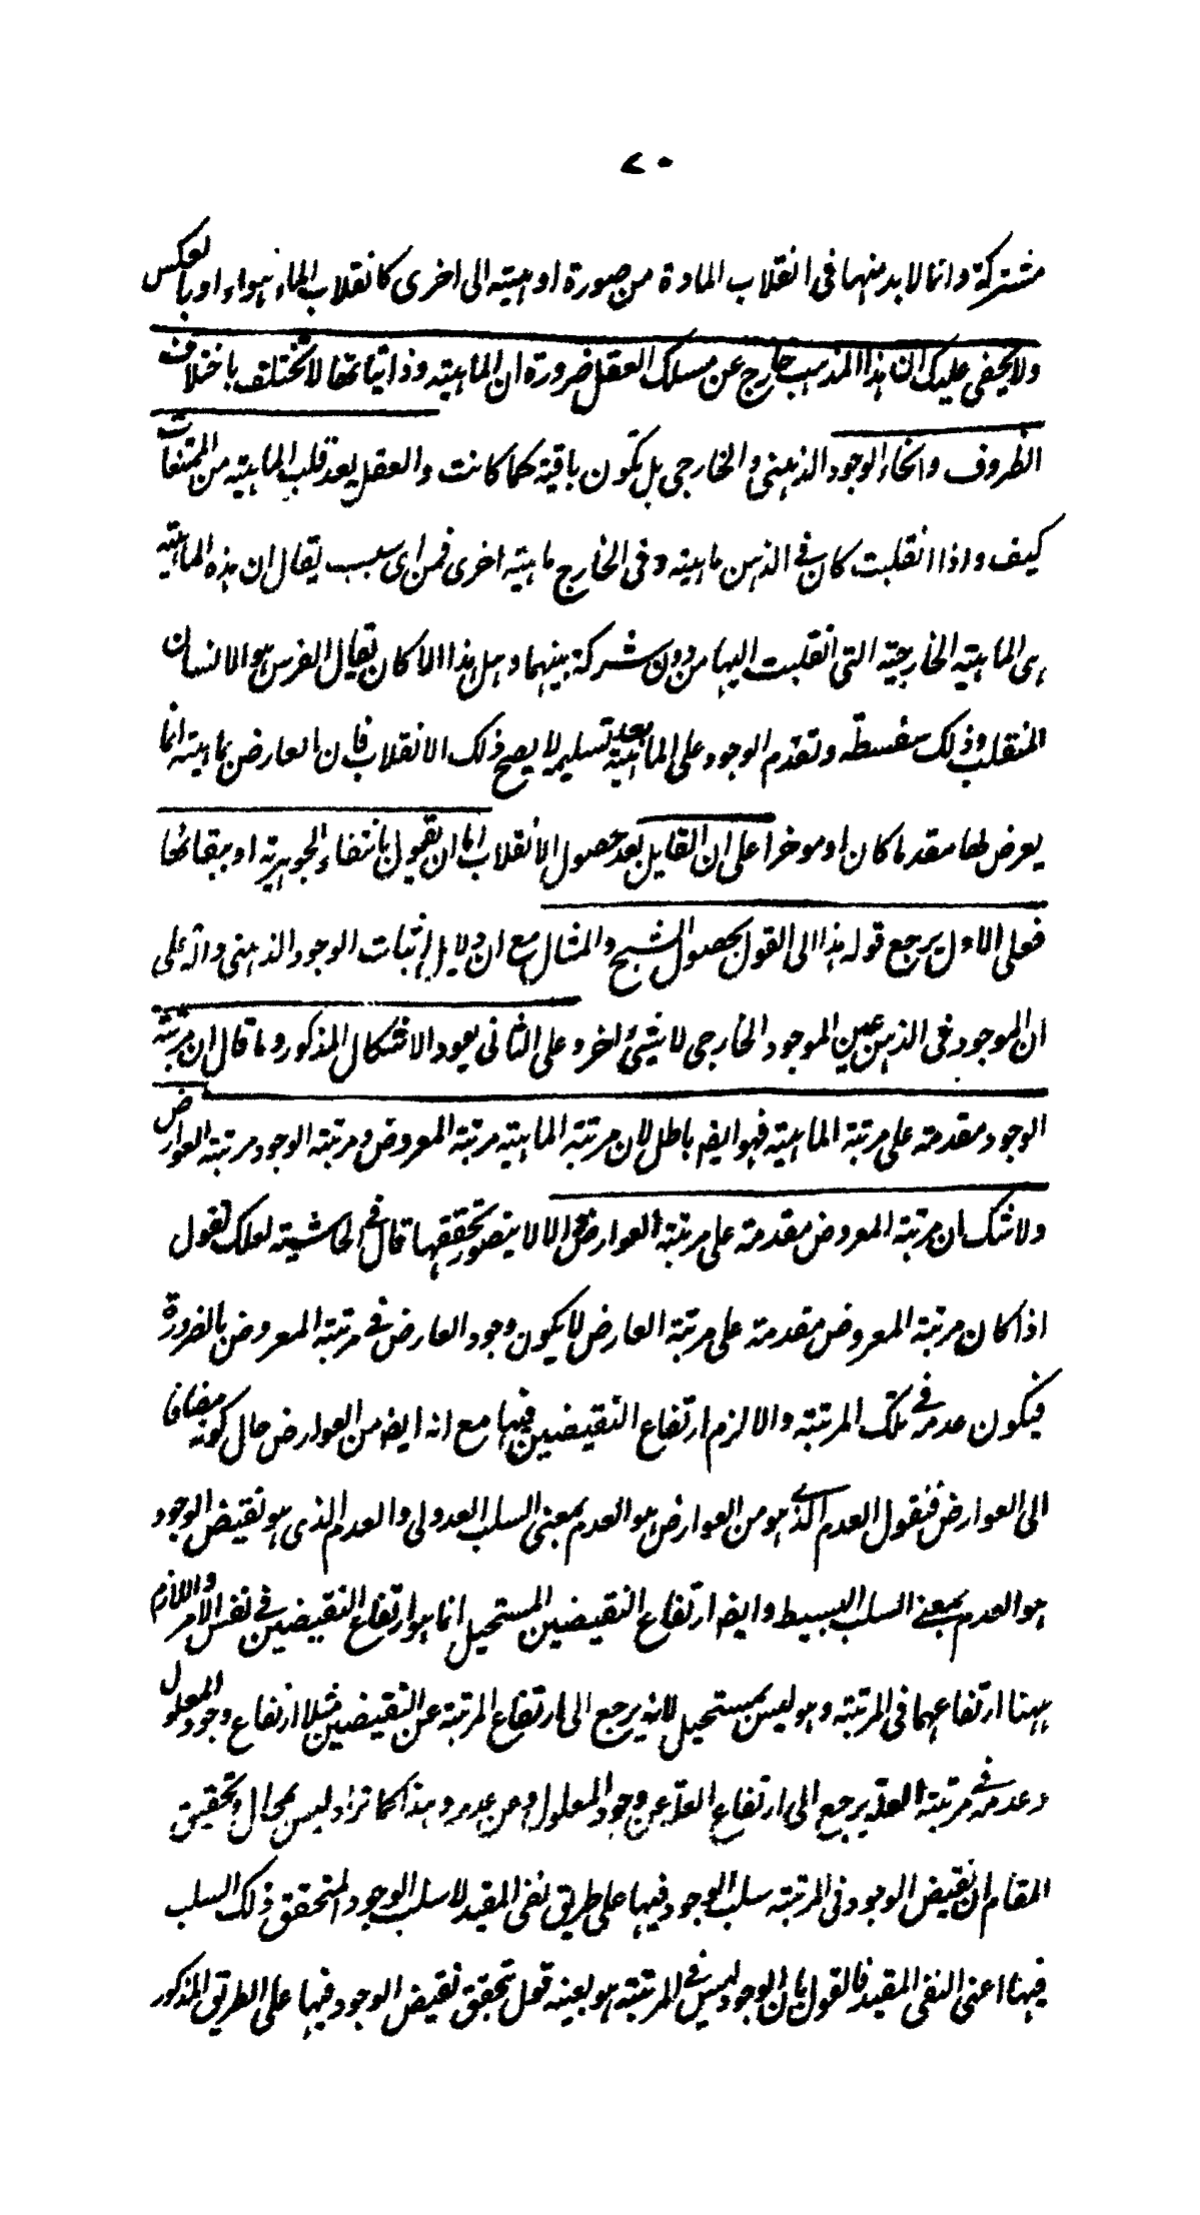 ٧٠
مشتركة وانما لابد منها فى انقلاب المادة من صورة او هيئته الى اخرى كانقلاب الماء هواء او بالعكس
ولا يخفى عليك ان هذا المذهب خارج عن مسلك العقل ضرورة ان الماهية وذاتياتها لا تختلف باختلاف
الظروف وانحاء الوجود الذهنى والخارجى بل تكون باقية كما كانت والعقل يعد قلب الماهية من الممتنعات
كيف واذا انقلبت كان فى الذهن ماهية وفى الخارج ماهية اخرى فمن اى سبب يقال ان هذه الماهية
هى الماهية الخارجية التى انقلبت اليها من دون شركة بينهما وهل هذا الا كان يقال الفرس هو الانسان
المنقلب وذلك سفسطة وتقدم الوجود على الماهية بعد تسليمه لا يصح ذلك الانقلاب فان العارض بماهية انما
يعرض لها مقدما كان او موخرا على ان القايل بعد حصول الانقلاب اما ان يقول بانتفاء الجوهرية او ببقائها
فعلى الاول يرجع قوله هذا الى القول بحصول الشبح والمثال مع ان دلايل اثبات الوجود الذهنى دالة على
ان الموجود فى الذهن عين الموجود الخارجى لا شيئ اخر وعلى الثانى يعود الاشكال المذكور وما قال ان مرتبة
الوجود مقدمة على مرتبة الماهية فهو ايضا باطل لان مرتبة الماهية مرتبة المعروض ومرتبة الوجود مرتبة العوارض
ولا شك ان مرتبة المعروض مقدمة على مرتبة العوارض والا لا يتصور تحققها قال فى الحاشية لعلك تقول
اذا كان مرتبة المعروض مقدمة على مرتبة العارض لا يكون وجود العارض فى مرتبة المعروض بالضرورة
فيكون عدمه فى تلك المرتبة والا لزم ارتفاع النقيضين فيها مع انه ايضا من العوارض حال كونه مضافا
الى العوارض فنقول العدم الذى هو من العوارض هو العدم بمعنى السلب العدولى والعدم الذى هو نقيض الوجود
هو العدم بمعنى السلب البسيط وايضا ارتفاع النقيضين المستحيل انما هو ارتفاع النقيضين فى نفس الامر واللازم
ههنا ارتفاعهما فى المرتبة وهو ليس بمستحيل لانه يرجع الى ارتفاع المرتبة عن النقيضين مثلا ارتفاع وجود المعلول
وعدمه فى مرتبة العلة يرجع الى ارتفاع العلة عن وجود المعلول وعن عدمه وهذا كما تراه ليس بمحال وتحقيق
المقام ان نقيض الوجود فى المرتبة سلب الوجود فيها على طريق نفى المقيد لا سلب الوجود المتحقق ذلك السلب
فيها اعنى النفى المقيد فالقول بان الوجود ليس فى المرتبة هو بعينه قول بتحقق نقيض الوجود فيها على الطريق المذكور